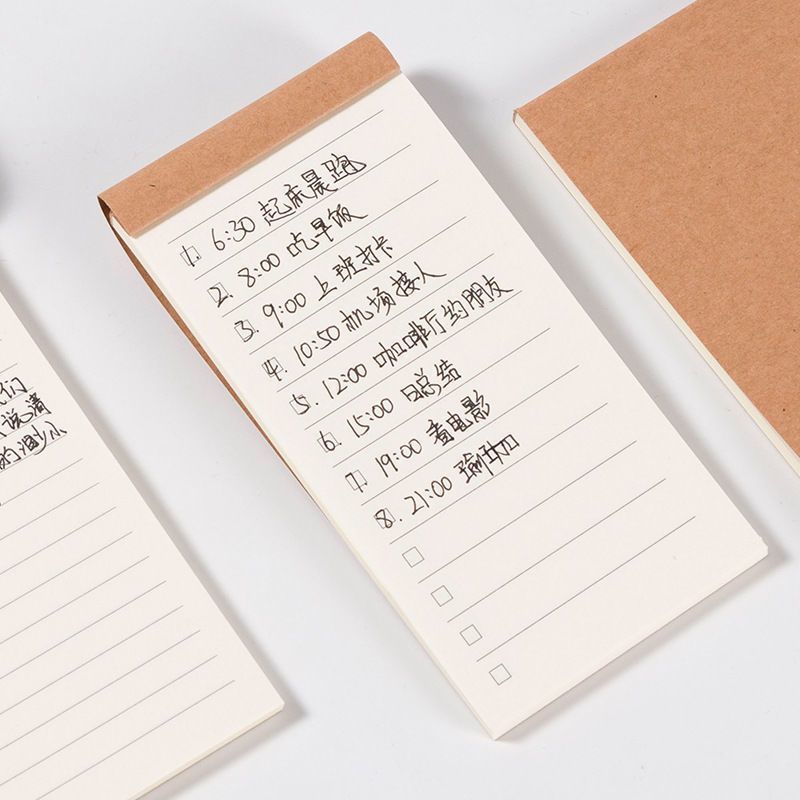 1. 6:30 起床晨跑
2. 8:00 吃早饭
3. 9:00 上班打卡
4. 10:50 机场接人
5. 12:00 咖啡厅约朋友
6. 15:00 日总结
7. 19:00 看电影
8. 21:00 瑜伽
们
说清
的渺小